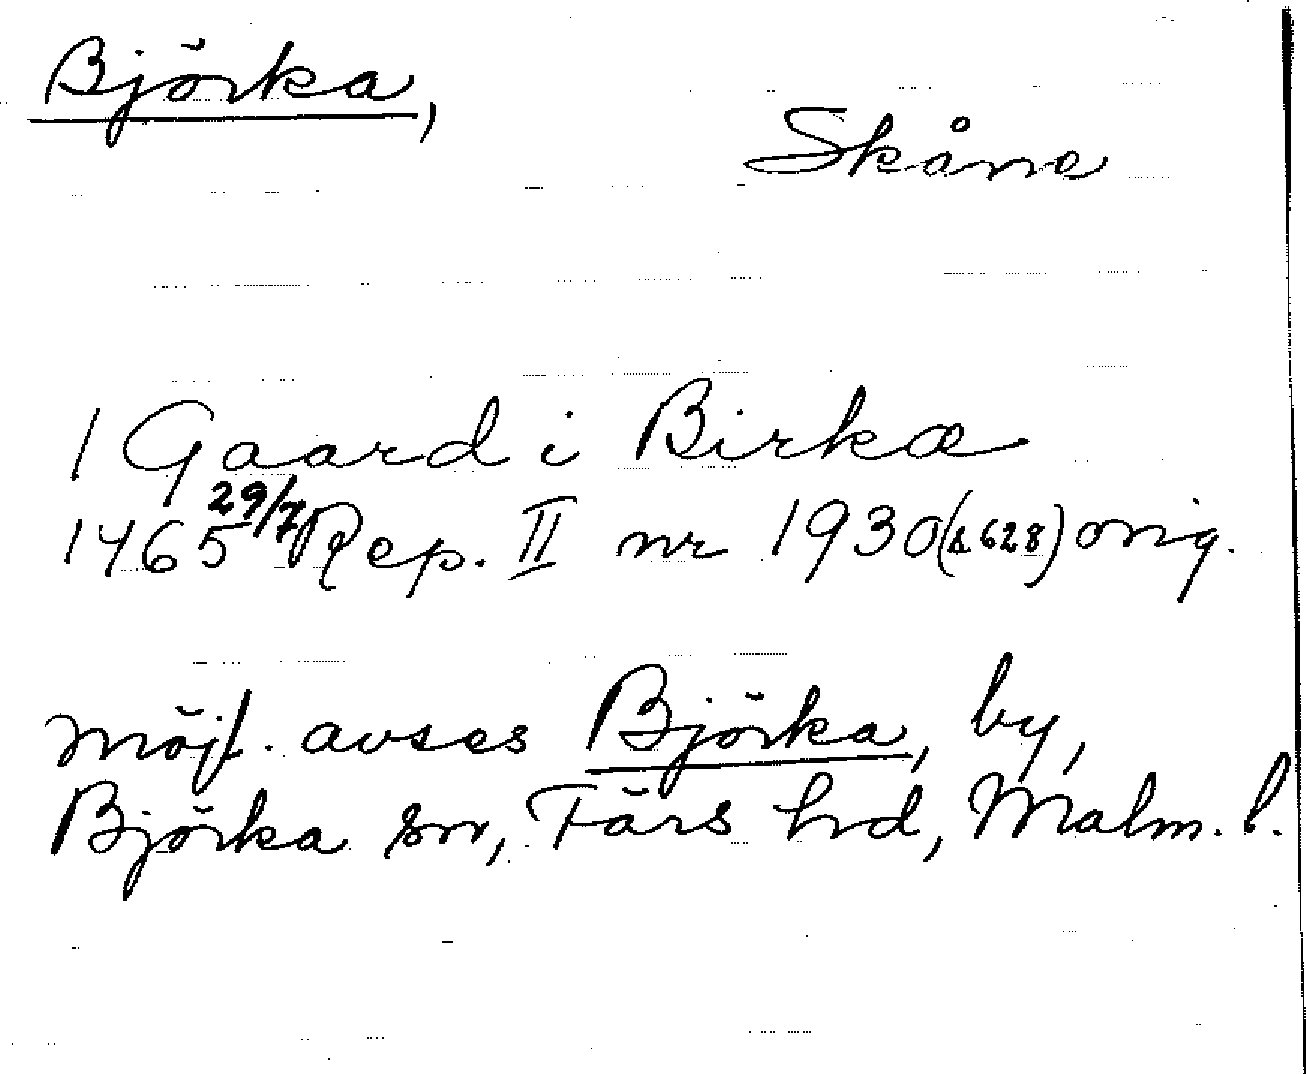 Björka,
Skåne
1 Gaard i Birkæ
1465 29/7 Rep. II nr 1930 (s 628) orig.
möjl. avses Björka, by,
Björka sn, Färs hd, Malm. l.